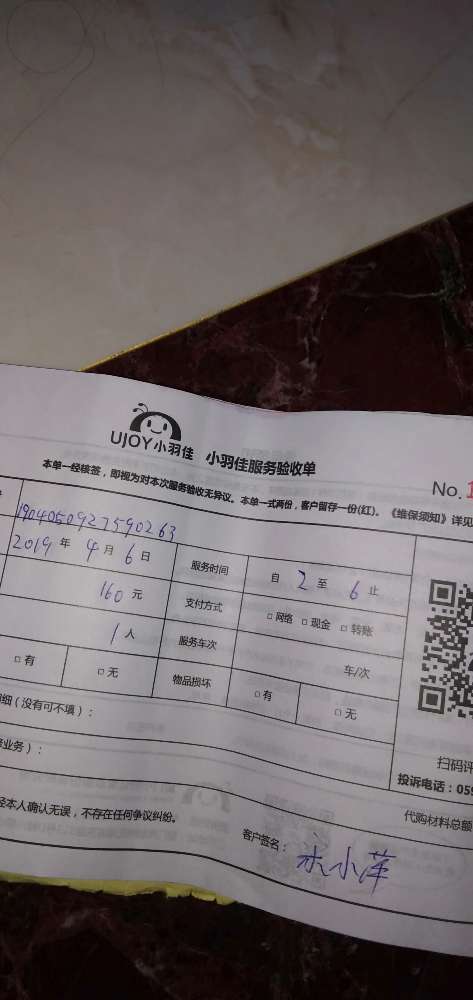 UJOY小羽佳 小羽佳服务验收单
No.1
本单一经核签，即视为对本次服务验收无异议。本单一式两份，客户留存一份(红)。《维保须知》详见
1904050927590263
2019年4月6日 服务时间 自 2 至 6 止
160元 支付方式 □网络 □现金 □转账
1人 服务车次 车/次
□有 □无 物品损坏 □有 □无
细（没有可不填）：
扫码评
业务）：
投诉电话：059
代购材料总额
经本人确认无误，不存在任何争议纠纷。
客户签名： 小萍